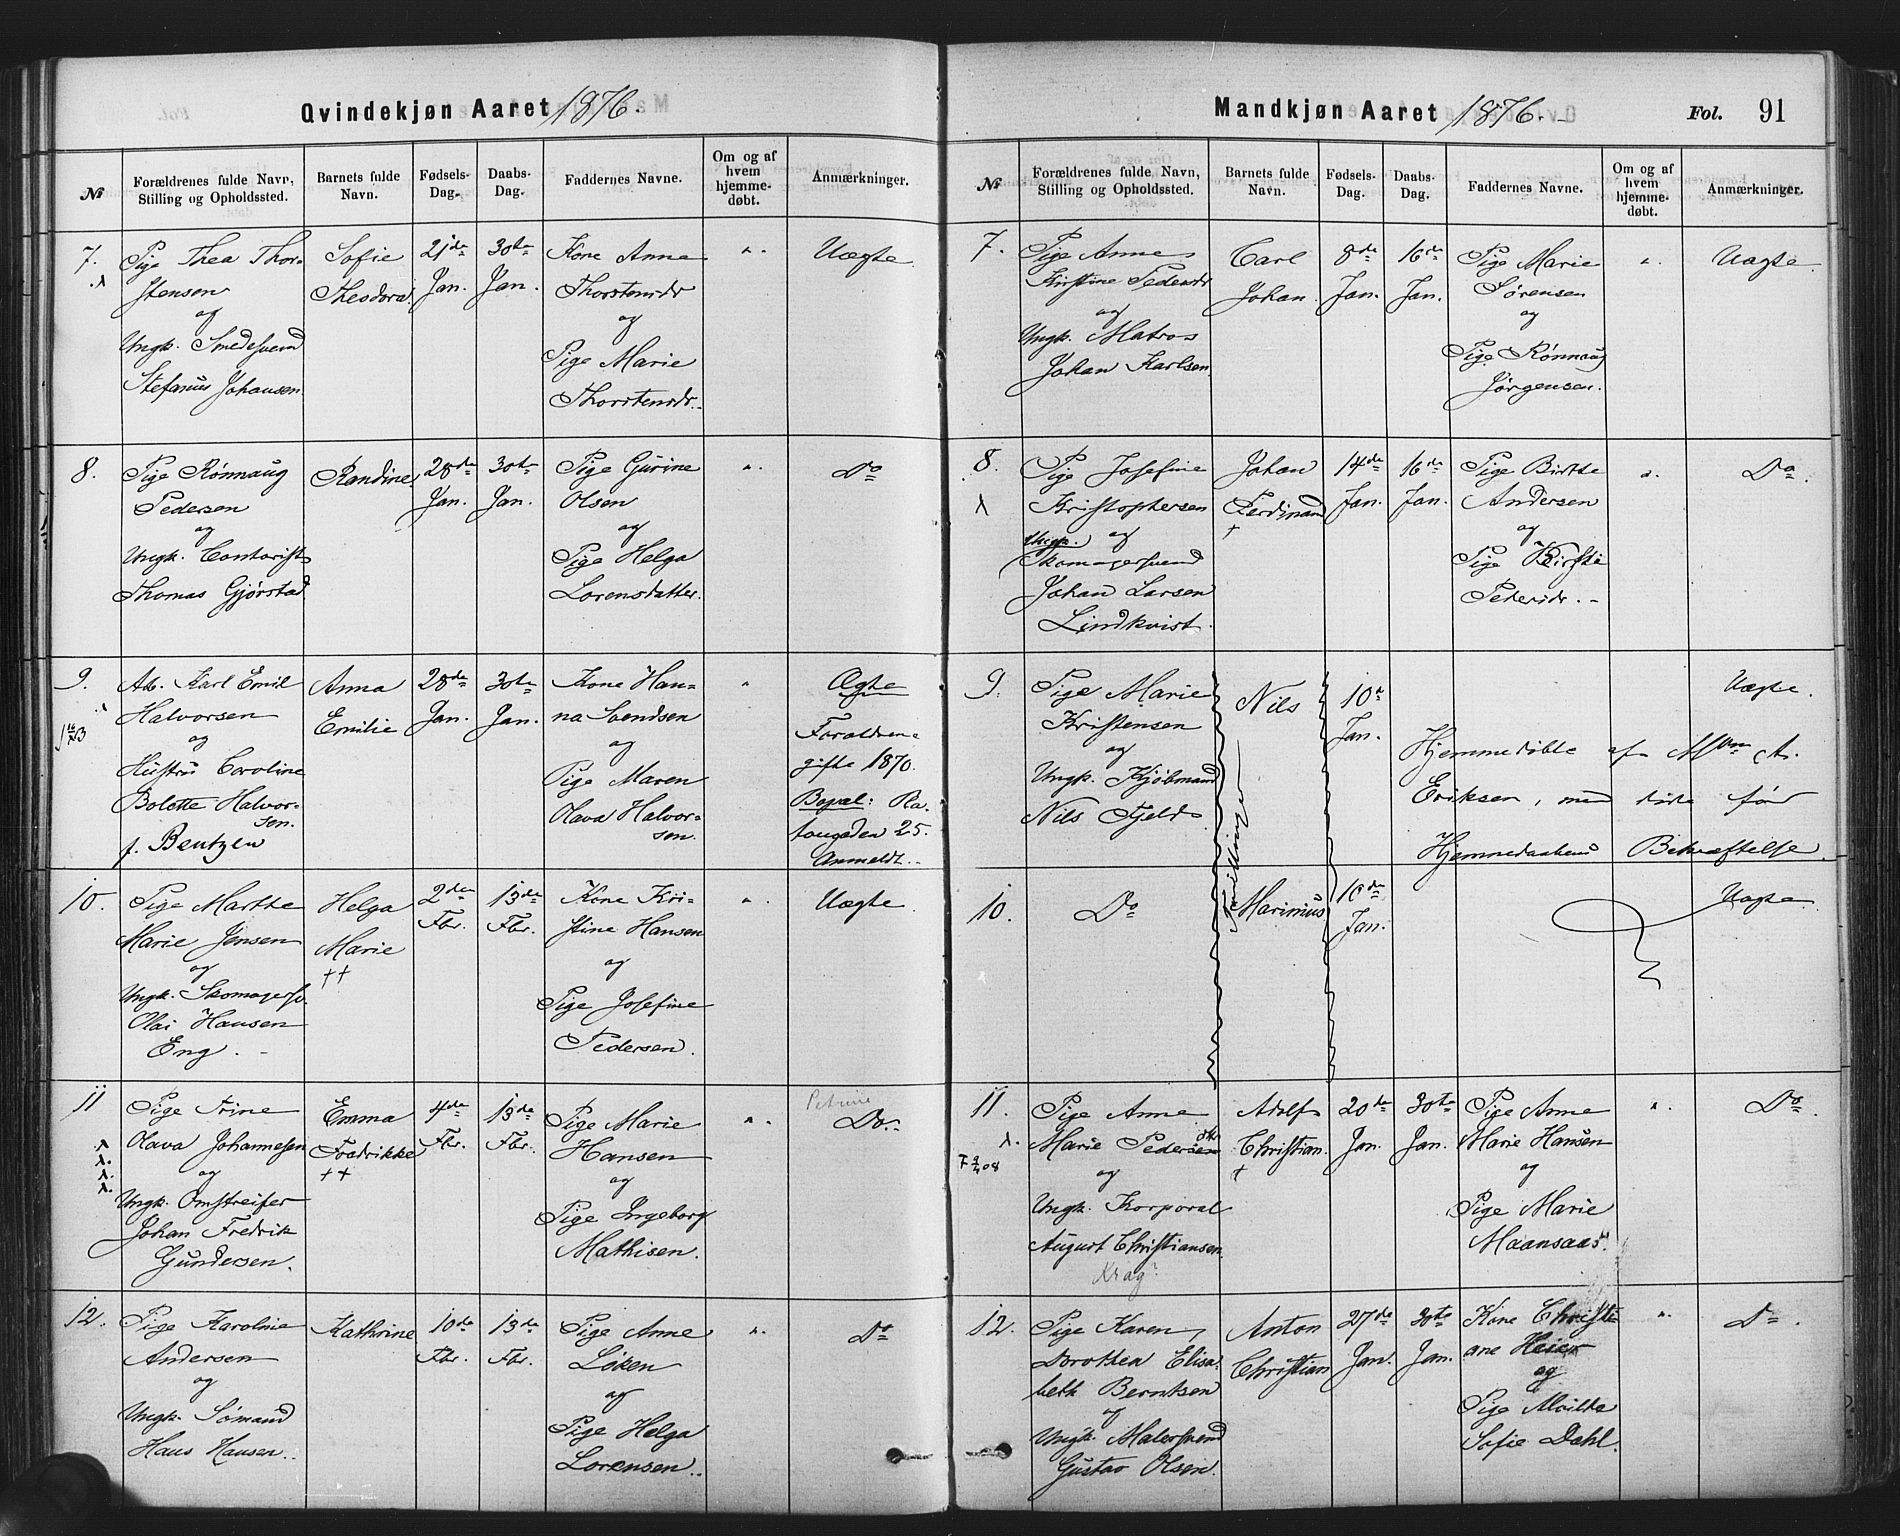 Qvindekjøn Aaret 1876.
№
Forældrenes fulde Navn, Stilling og Opholdssted.
Barnets fulde Navn.
Fødsels-Dag.
Daabs-Dag.
Faddernes Navne.
Om og af hvem hjemme-døbt.
Anmærkninger.
7.
Pige Thea Thor-
stensen
og
Ungk. Smedesvend
Stefanus Johansen.
Sofie
Theodora.
21de
Jan.
30te
Jan.
Kone Anna
Thorstensdr
og
Pige Marie
Thorstensdr.
".
Uægte.
8.
Pige Rønnaug
Pedersen
og
Ungk. Contorist
Thomas Gjørstad.
Randine.
28de
Jan.
30te
Jan.
Pige Gurine
Olsen
og
Pige Helga
Lorensdatter.
".
Do
9.
Ab. Karl Emil
Halvorsen
og
Hustru Caroline
Bolette Halvor-
sen.
f. Bentzen
Anna
Emilie
28de
Jan.
30te
Jan.
Kone Han-
na Svendsen
og
Pige Maren
Olava Halvor-
sen.
"
Ægte
Forældrene
gifte 1870.
Bopæl: Ra-
tougaden 25.
Anmeldt.
10.
Pige Marthe
Marie Jensen
og
Ungk. Skomagersv.
Olai Hansen
Eng.
Helga
Marie
++
2den
Fbr.
13de
Fbr.
Kone Kri-
stine Hansen
og
Pige Josefine
Pedersen.
".
Uægte.
11
Pige Trine
Olava Johannesen
og
Ungk. Omstreifer
Johan Fredrik
Gundersen.
Emma
Fredrikke
++
4de
Fbr.
13de
Fbr.
Pige Marie
Hansen
og
Pige Ingeborg
Mathisen.
".
Petrine
Do.
12.
Pige Karoline
Andersen
og
Ungk. Sømand
Hans Hansen.
Kathrine
10de
Fbr.
13de
Fbr.
Pige Anne
Løken
og
Pige Helga
Lorensen.
".
Do
Mandkjøn Aaret 1876.
Fol. 91
№
Forældrenes fulde Navn, Stilling og Opholdssted.
Barnets fulde Navn.
Fødsels-Dag.
Daabs-Dag.
Faddernes Navne.
Om og af hvem hjemme-døbt.
Anmærkninger.
7.
Pige Anne
Kristine Pedersdr
og
Ungk. Matros
Johan Karlsen.
Carl
Johan.
8de
Jan.
16de
Jan.
Pige Marie
Sørensen
og
Pige Rønnaug
Jørgensen.
".
Uægte.
8.
Pige Josefine
Kristophersen
Ungk. og
Skomagersvend
Johan Larsen
Lindkvist.
Johan
Ferdinand
+
14de
Jan.
16de
Jan.
Pige Birthe
Andersen
og
Pige Kirsti
Pedersdr.
".
Do.
9.
Pige Marie
Kristensen
og
Ungk. Kjøbmand
Nils Fjeld
Nils
10de
Jan.
Tvillinger
Uægte.
Hjemmedøbte af Mme A.
Eriksen, men døde før
Hjemmedaabens Bekræftelse.
10.
Do
Marinius
10de
Jan.
Uægte.
11.
Pige Anne
Marie Pedersen
og
Ungk. Korporal
August Christiansen.
Krag?
Adolf
Christian.
+
20de
Jan.
30te
Jan.
Pige Anne
Marie Hansen
og
Pige Marie
Maansaas.
".
Do.
12.
Pige Karen
Dorothea Elisa-
beth Berntsen
og
Ungk. Malersvend
Gustav Olsen.
Anton
Christian
27de
Jan.
30te
Jan.
Kone Christi-
ane Heier
og
Pige Alvilde
Sofie Dahl.
".
Do.